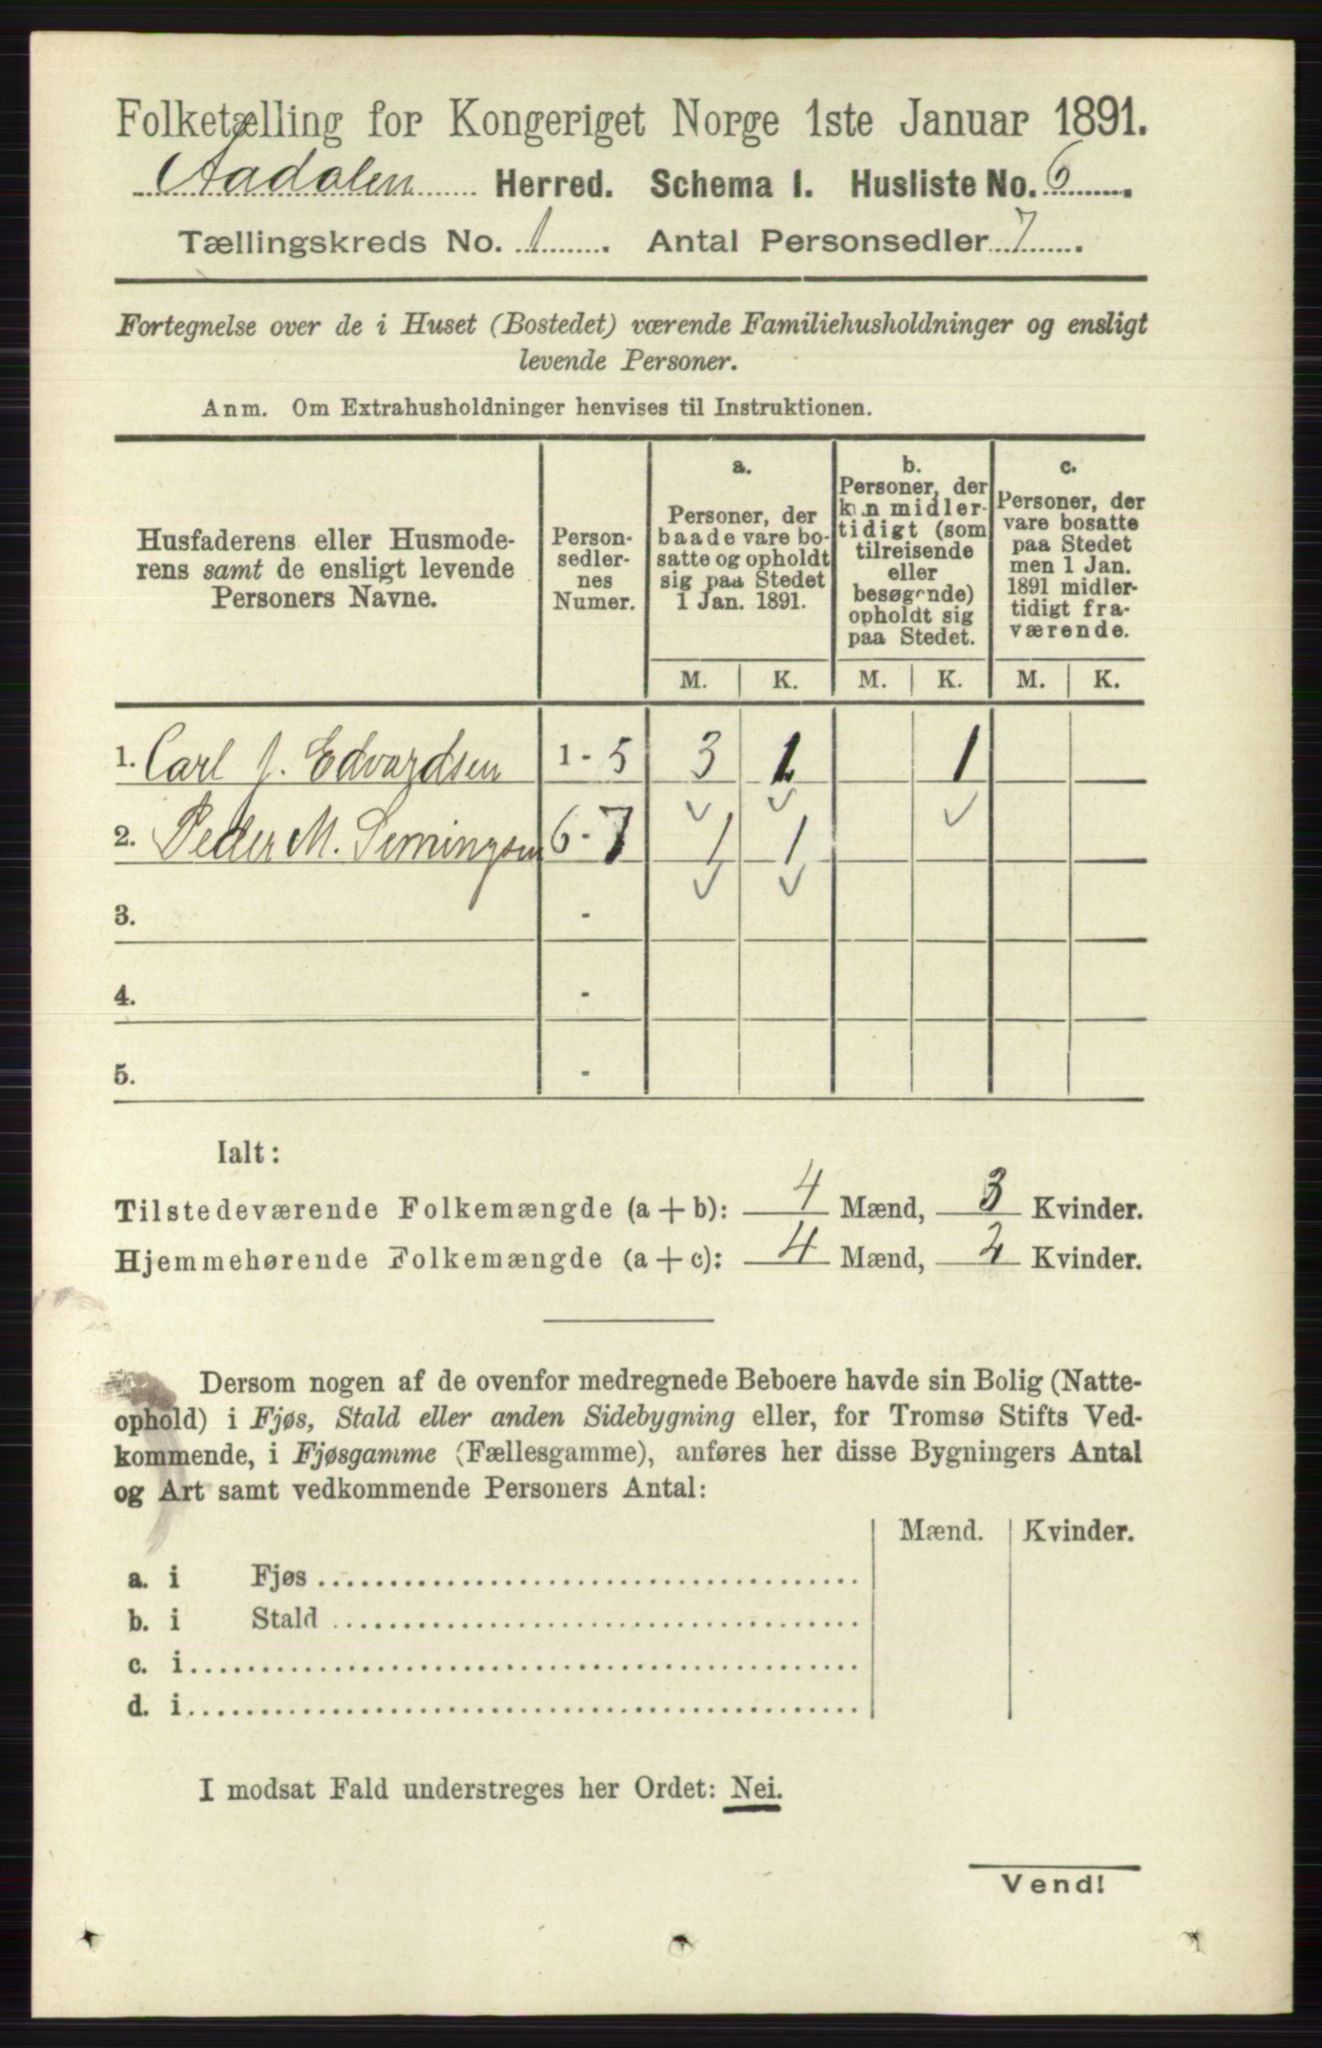 Folketælling for Kongeriget Norge 1ste Januar 1891.
Aadalen Herred. Schema 1. Husliste No. 6
Tællingskreds No. 1. Antal Personsedler 7.
Fortegnelse over de i Huset (Bostedet) værende Familiehusholdninger og ensligt
levende Personer.
Anm. Om Extrahusholdninger henvises til Instruktionen.
Husfaderens eller Husmode-
rens samt de ensligt levende
Personers Navne.
Person-
sedler-
nes
Numer.
a.
Personer, der
baade vare bo-
satte og opholdt
sig paa Stedet
1 Jan. 1891.
b.
Personer, der
kun midler-
tidigt (som
tilreisende
eller
besøgende)
opholdt sig
paa Stedet.
c.
Personer, der
vare bosatte
paa Stedet
men 1 Jan.
1891 midler-
tidigt fra-
værende.
M. K. M. K. M. K.
1. Carl J. Edvardsen 1-5 3 1 1
2. Peder M. Simingsen 6-7 1 1
3. -
4. -
5. -
Ialt:
Tilstedeværende Folkemængde (a + b): 4 Mænd, 3 Kvinder.
Hjemmehørende Folkemængde (a + c): 4 Mænd, 2 Kvinder.
Dersom nogen af de ovenfor medregnede Beboere havde sin Bolig (Natte-
ophold) i Fjøs, Stald eller anden Sidebygning eller, for Tromsø Stifts Ved-
kommende, i Fjøsgamme (Fællesgamme), anføres her disse Bygningers Antal
og Art samt vedkommende Personers Antal:
Mænd. Kvinder.
a. i Fjøs
b. i Stald
c. i
d. i
I modsat Fald understreges her Ordet: Nei.
Vend!